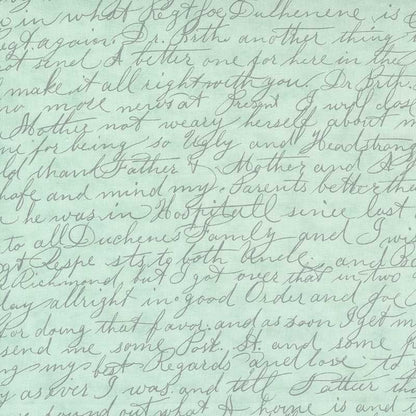 in what Regt Joe Duchenene is
again. Dr. Brth. another thing
send A better one for here in the
make it all right with you. Dr. Brth.
no more news at Present I will
Mother not weary herself about
for being so Ugly and Headstrong
thank Father & Mother and
and mind my Parents better
he was in Hospitall since last
to all Duchenes Family and I
to both Uncle. and
Richmond but I got over that in two
day allright in good Order and
For doing that favor. and as soon I get
send me some Post. St. and some
my best Regards and love to
as ever I was and tell Father
found out what A home is and